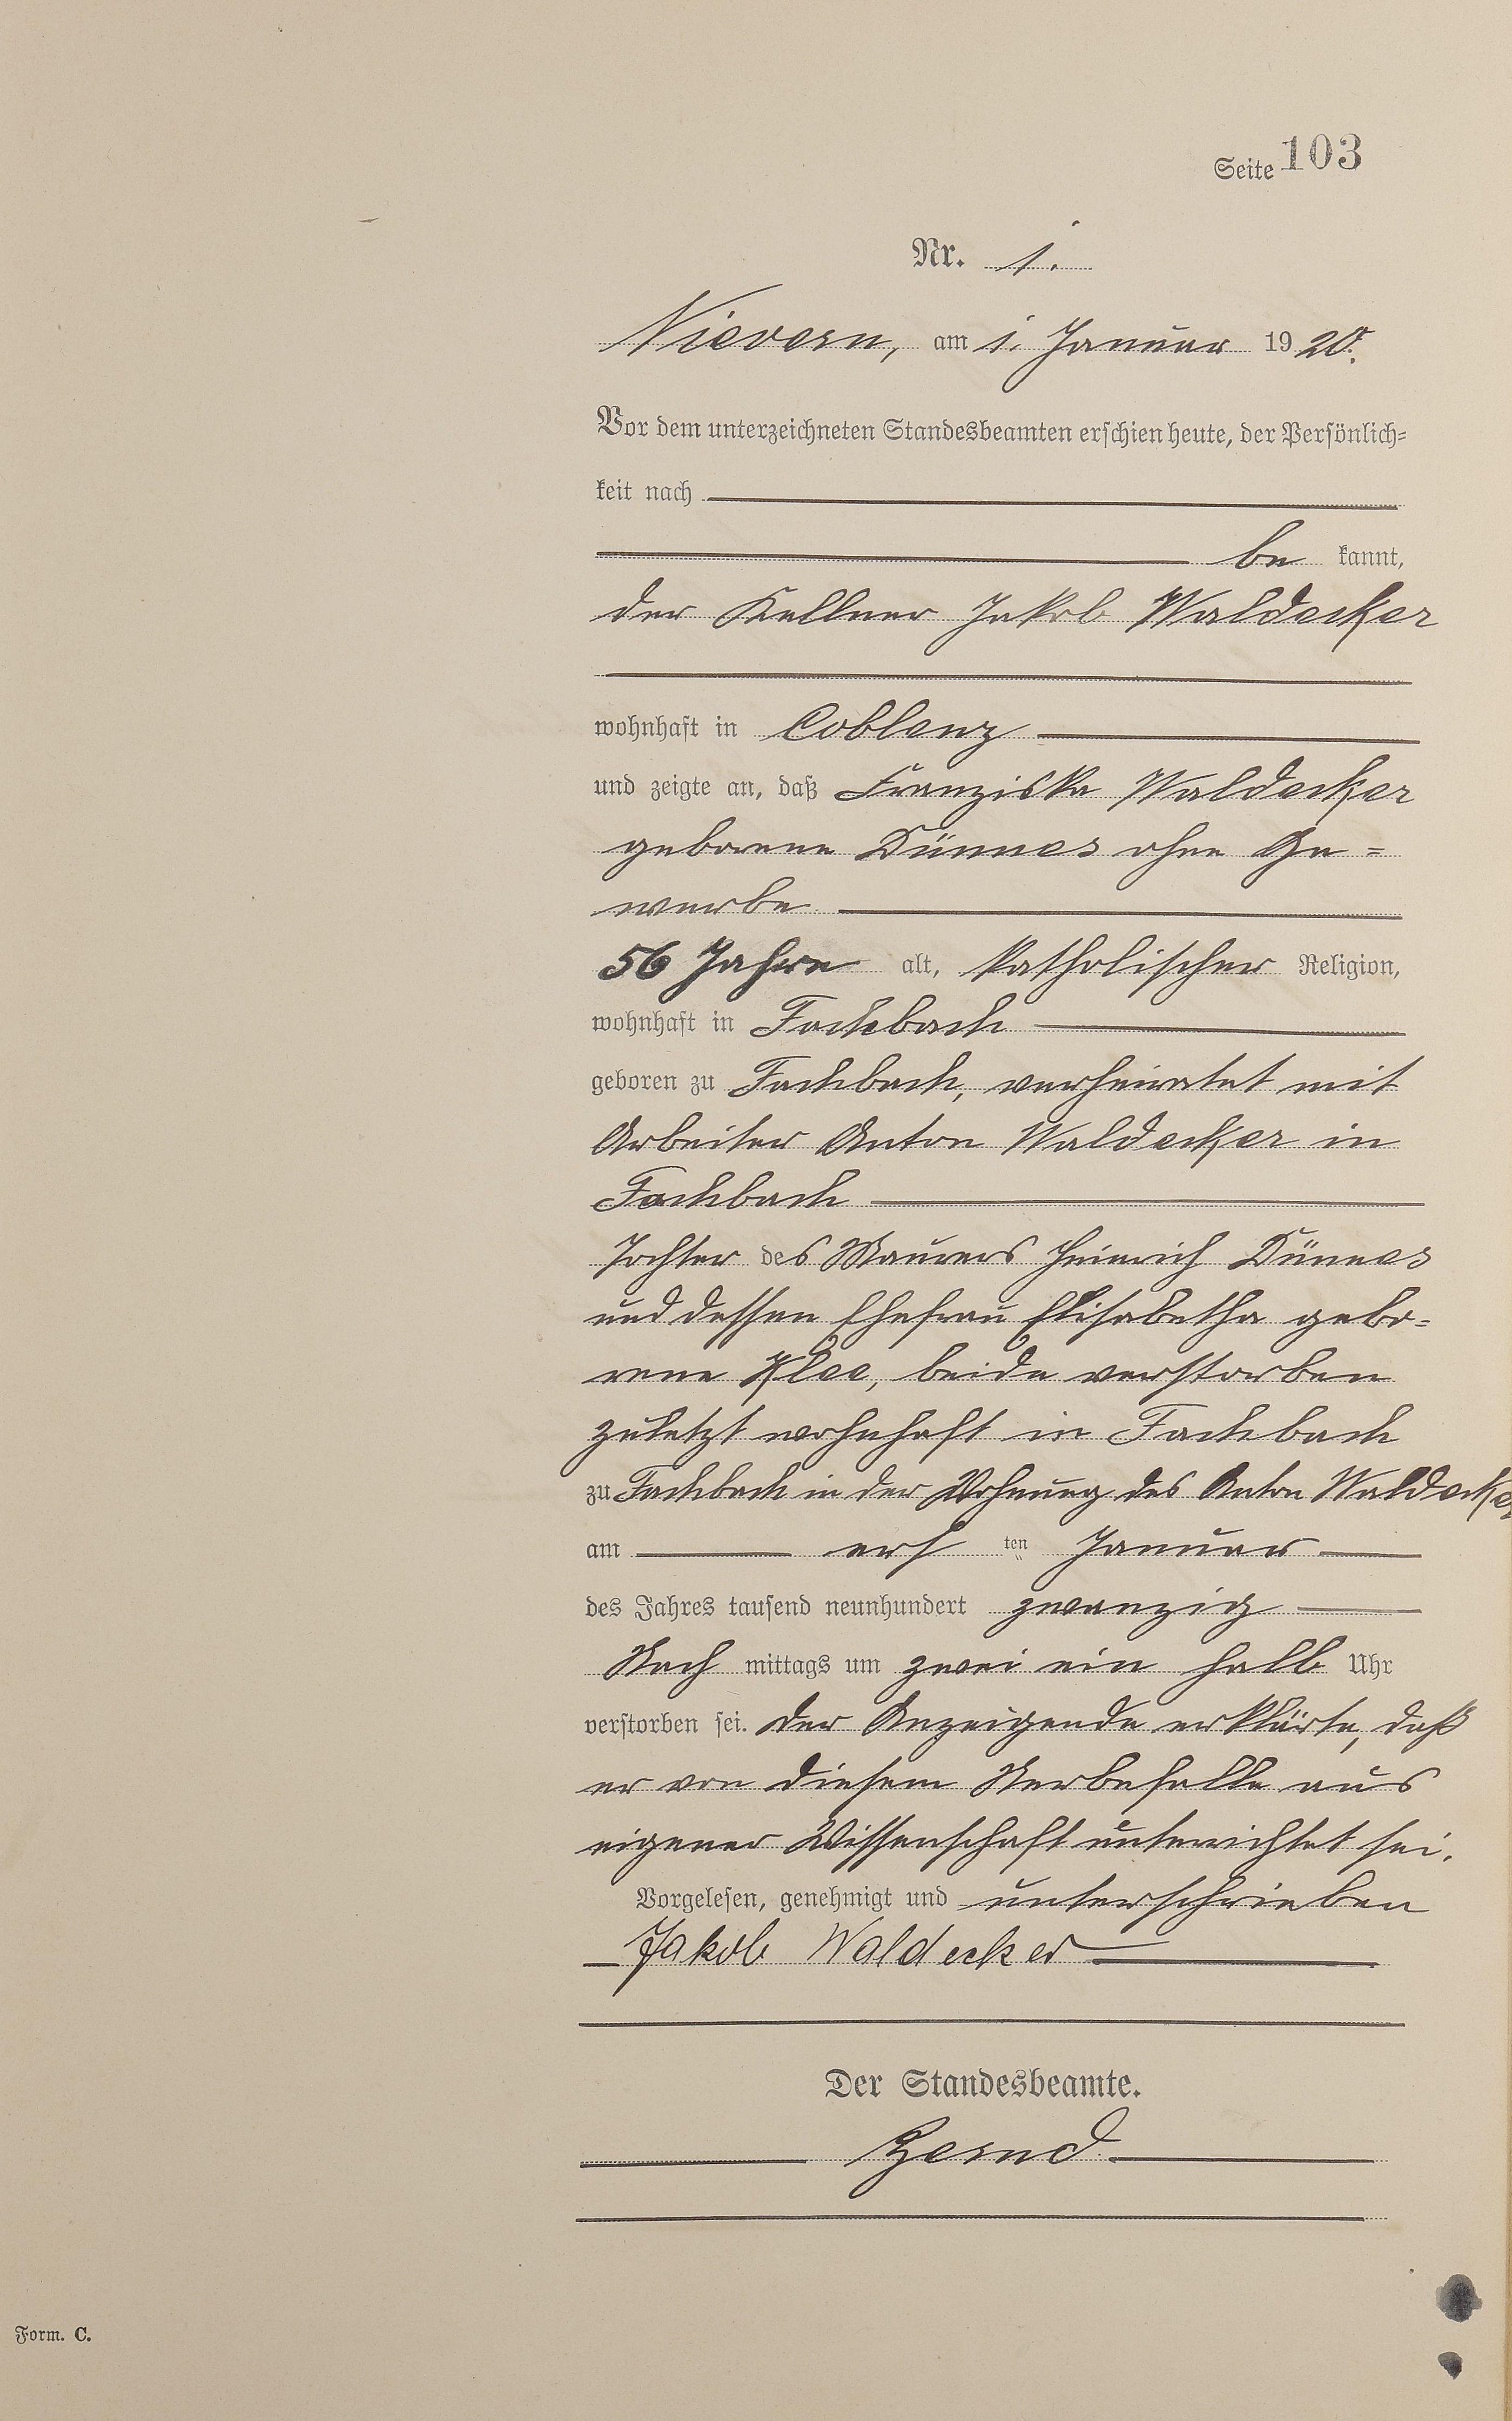 Seite 103
Nr. 1.
Nievern, am 1. Januar 1920.
Vor dem unterzeichneten Standesbeamten erschien heute, der Persönlich=
keit nach
be kannt,
der Kellner Jakob Waldecker
wohnhaft in Coblenz
und zeigte an, daß Franziska Waldecker
geborene Dünnes ohne Ge=
werbe
56 Jahre alt, katholischer Religion,
wohnhaft in Fachbach
geboren zu Fachbach, verheiratet mit
Arbeiter Anton Waldecker in
Fachbach
Tochter des Maurers Heinrich Dünnes
und dessen Ehefrau Elisabetha gebo=
rene Klee, beide verstorben
zuletzt wohnhaft in Fachbach
zu Fachbach in der Wohnung des Anton Waldecker
am ersten Januar
des Jahres tausend neunhundert zwanzig
Nach mittags um zwei ein halb Uhr
verstorben sei. Der Anzeigende erklärte, daß
er von diesem Sterbefalle aus
eigener Wissenschaft unterrichtet sei.
Vorgelesen, genehmigt und unterschrieben
Jakob Waldecker
Der Standesbeamte.
Form. C.